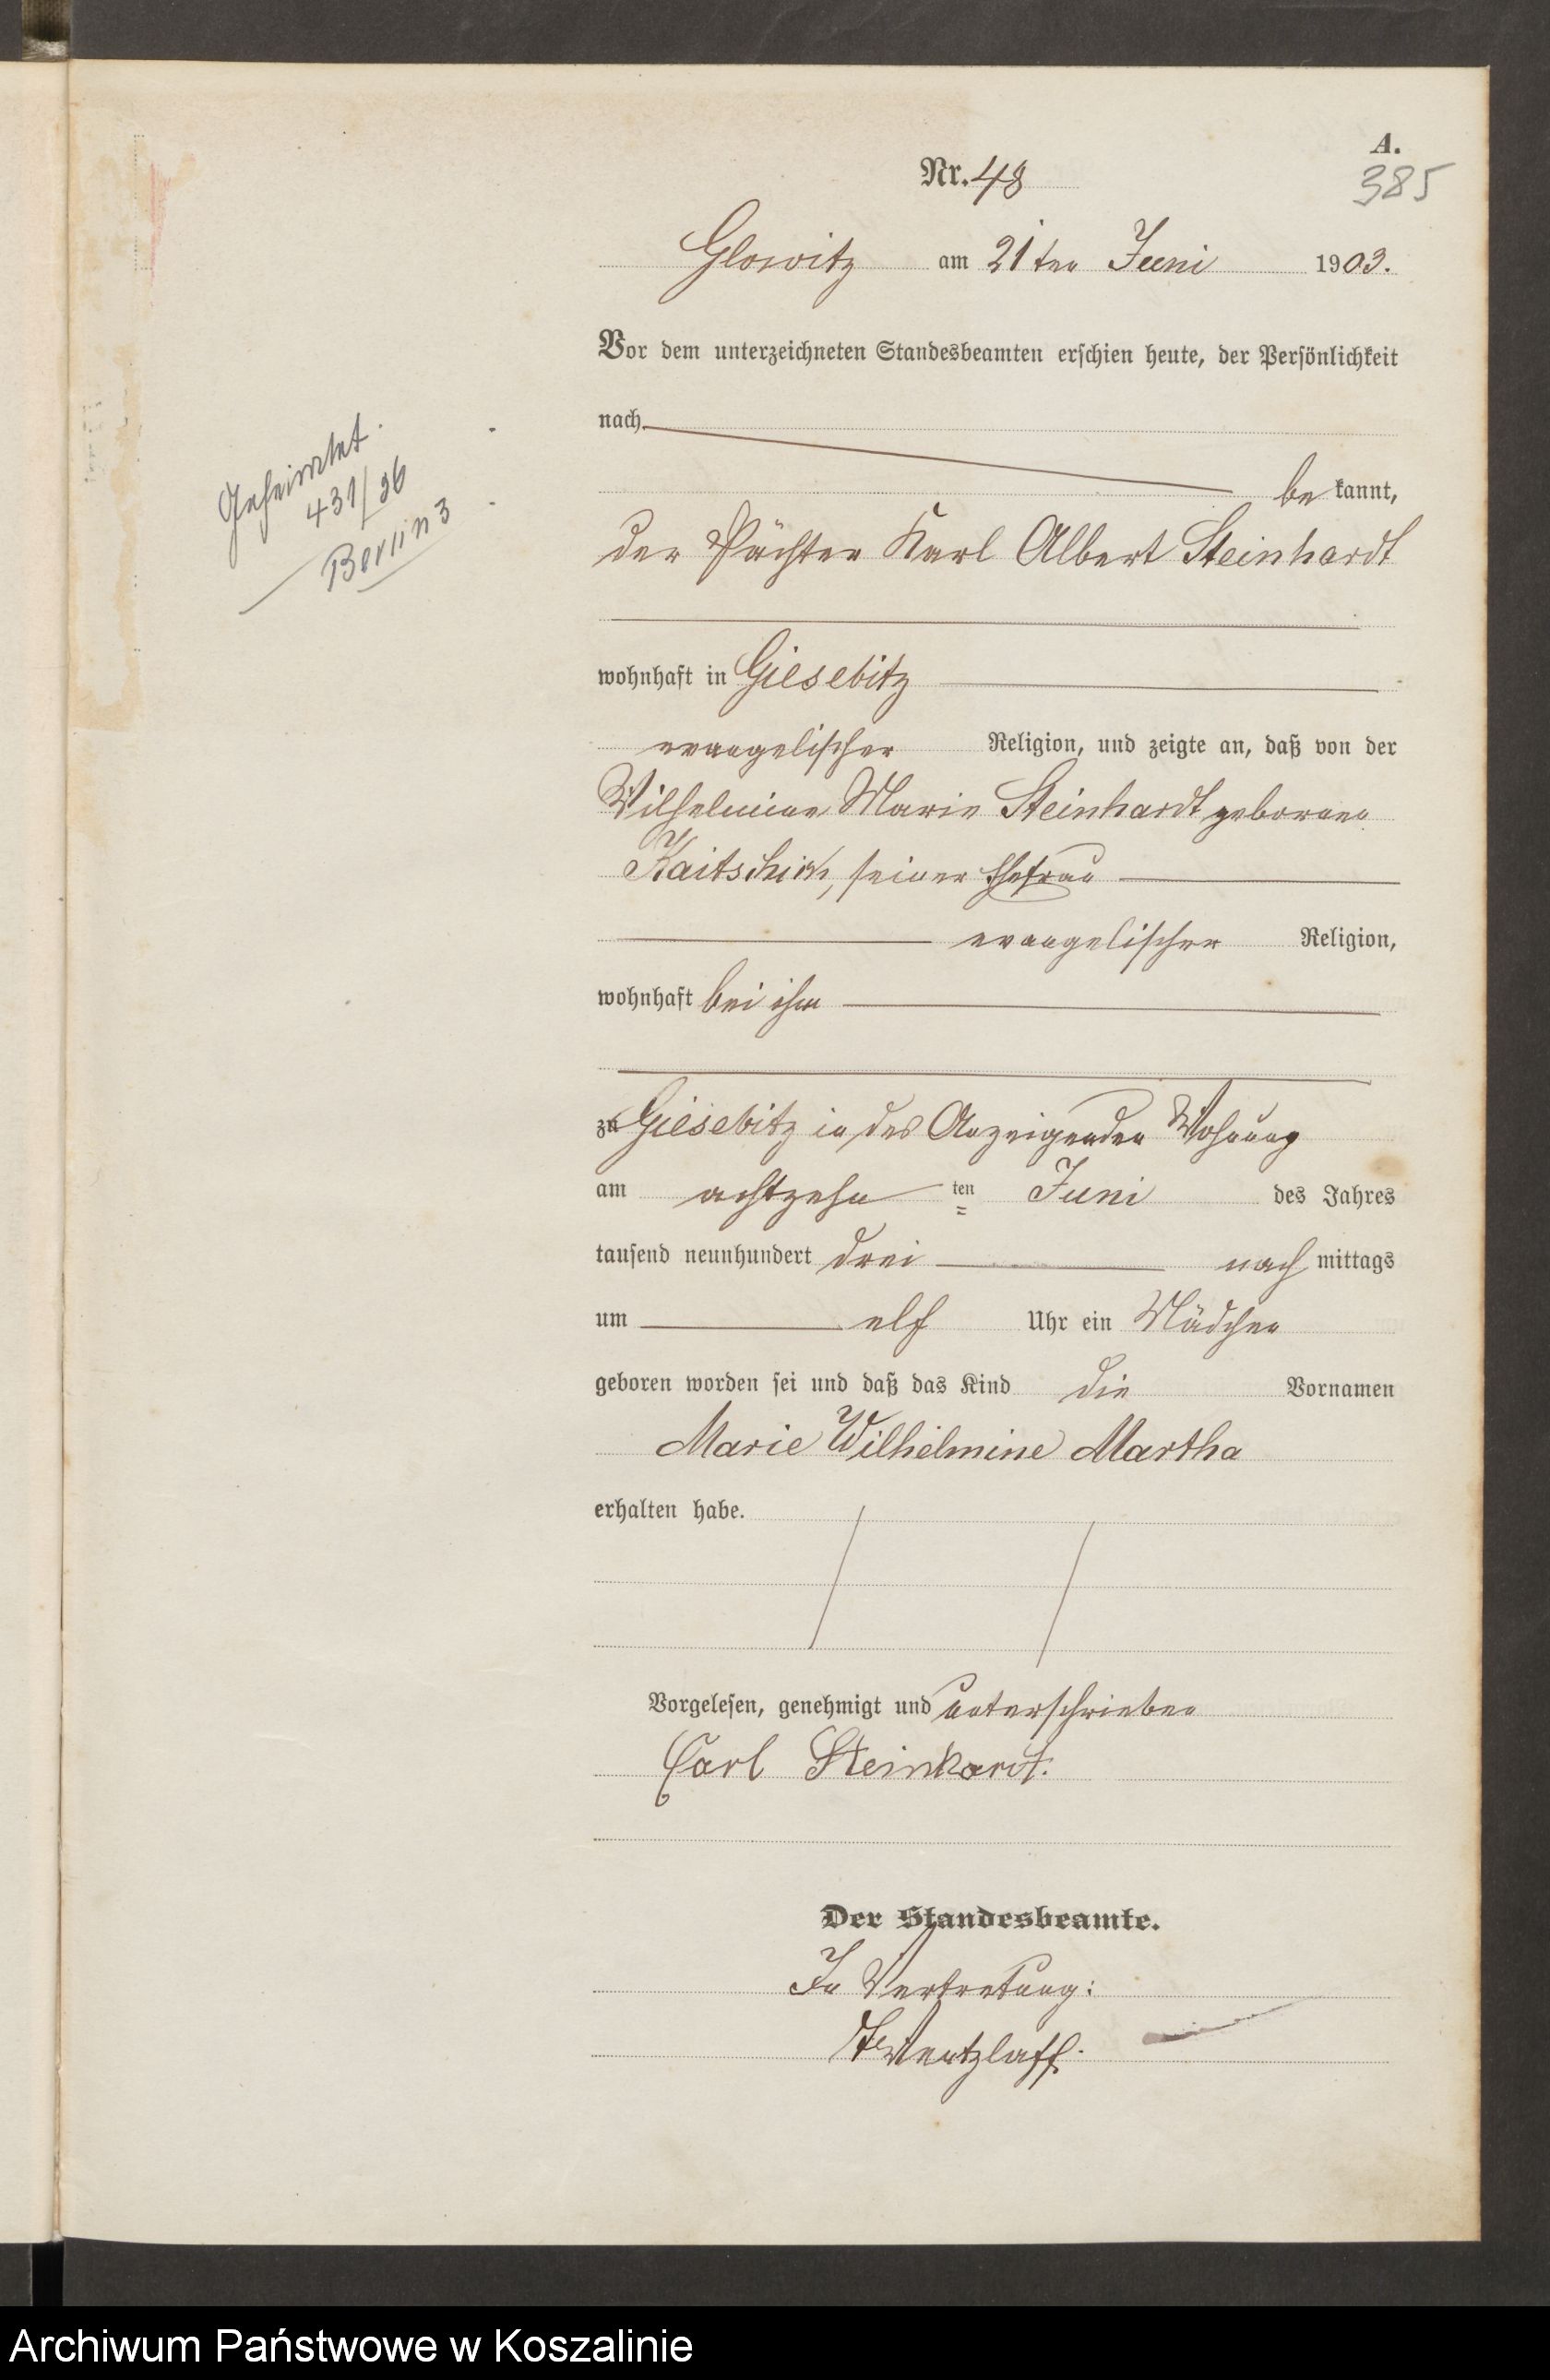 A.
Nr. 48
385
Glowitz am 21ten Juni 1903.
Vor dem unterzeichneten Standesbeamten erschien heute, der Persönlichkeit
nach
be kannt,
der Pächter Karl Albert Steinhardt
wohnhaft in Giesebitz
evangelischer Religion, und zeigte an, daß von der
Wilhelmine Marie Steinhardt geborenen
seiner Ehefrau
evangelischer Religion,
wohnhaft bei ihm
zu Giesebitz in des Anzeigenden Wohnung
am achtzehn ten Juni des Jahres
tausend neunhundert drei nach mittags
um elf Uhr ein Mädchen
geboren worden sei und daß das Kind die Vornamen
Marie Wilhelmine Martha
erhalten habe.
Vorgelesen, genehmigt und unterschrieben
Carl Steinhardt.
Der Standesbeamte.
In Vertretung:
Geheiratet.
431/36
Berlin 3
Archiwum Państwowe w Koszalinie